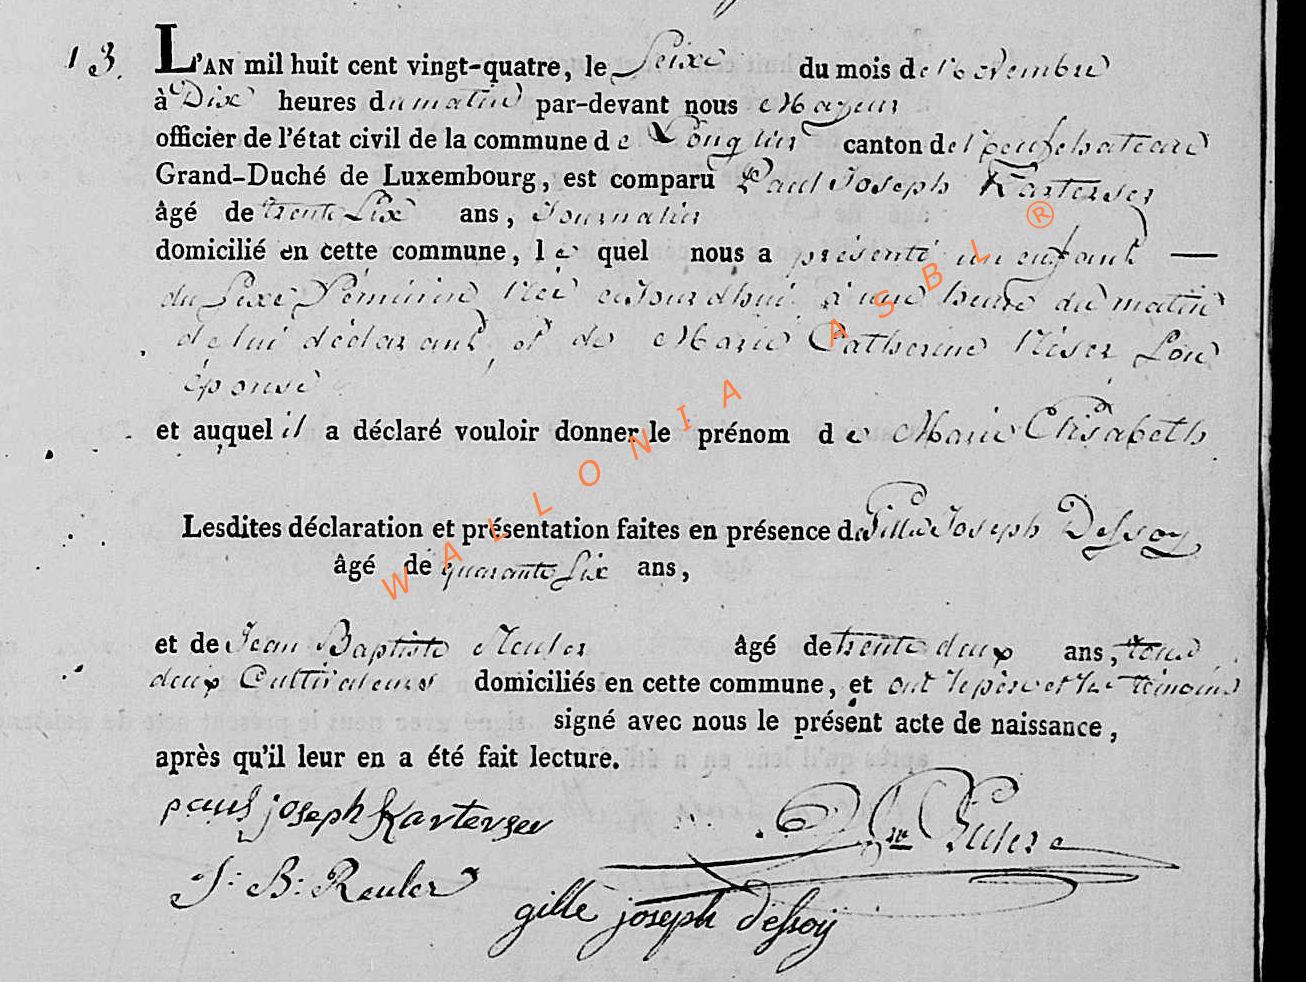 13.
L'AN mil huit cent vingt-quatre, le Seize du mois de Novembre
à Dix heures du matin par-devant nous Mayeur
officier de l'état civil de la commune de Longlier canton de Neufchateau
Grand-Duché de Luxembourg, est comparu Paul Joseph Kartenser
âgé de trente Six ans, Journalier
domicilié en cette commune, lequel nous a présenté un enfant —
du Sexe Féminin née aujourdhui à une heure du matin
de lui déclarant, et de Marie Catherine Son
épouse
et auquel il a déclaré vouloir donner le prénom de Marie Elisabeth
Lesdites déclaration et présentation faites en présence de Gille Joseph Dessoy
âgé de quarante Six ans,
et de Jean Baptiste Reuler âgé de trente deux ans, tous
deux Cultivateurs domiciliés en cette commune, et ont le père et les témoins
signé avec nous le présent acte de naissance,
après qu'il leur en a été fait lecture.
paul joseph Kartenser
J: B: Reuler
gille joseph dessoy
WALLONIA ASBL ®